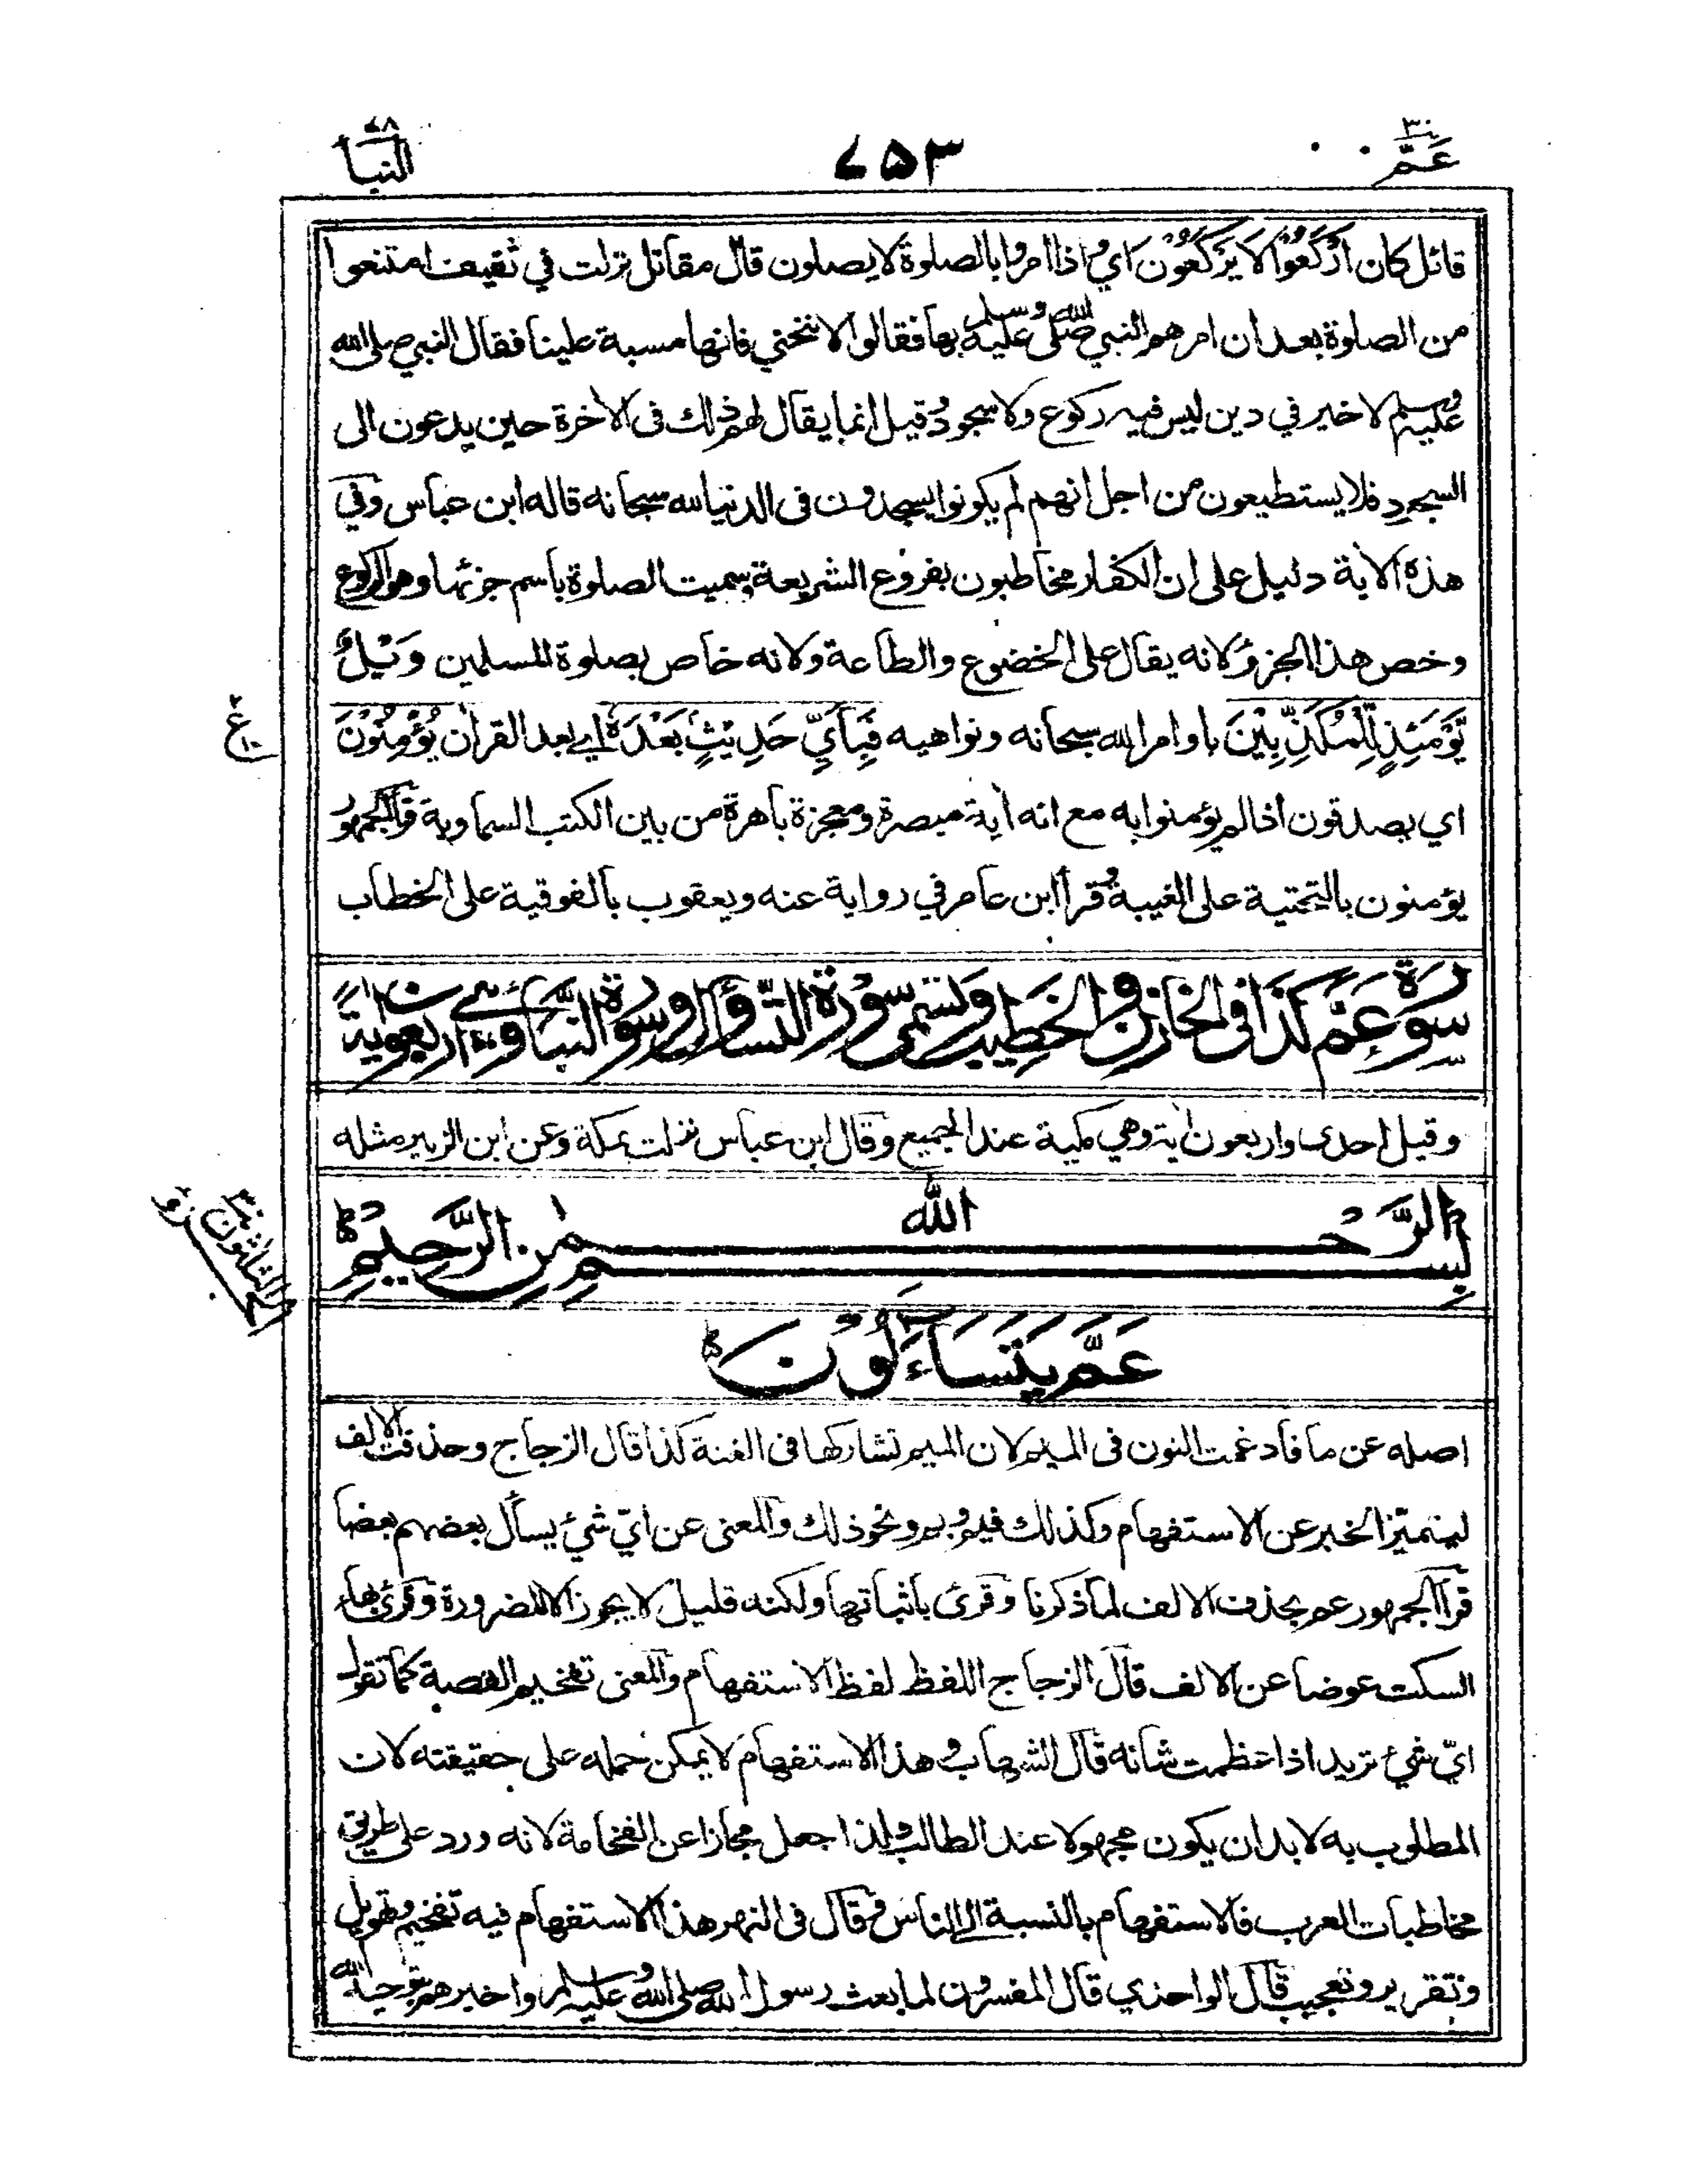 عَمَّ ٣٠
٧٥٣
النبا ٧٨
قائل كان ارْكَعُوْا لَا يَرْكَعُوْنَ اي واذا امروا بالصلوة لا يصلون قال مقاتل نزلت في ثقيف امتنعوا
من الصلوة بعد ان امرهم النبي صلى الله عليه وسلم بها فقالوا لا ننحني فانها مسبة علينا فقال النبي صلى الله
عليه وسلم لا خير في دين ليس فيه ركوع ولا سجود وقيل انما يقال لهم ذلك فى الاخرة حين يدعون الى
السجود فلا يستطيعون من اجل انهم لم يكونوا يسجدون فى الدنيا لله سبحانه قاله ابن عباس وفي
هذه الاية دليل على ان الكفار مخاطبون بفروع الشريعة وسميت الصلوة باسم جزئها وهو الركوع
وخص هذا الجزؤ لانه يقال على الخضوع والطاعة ولانه خاص بصلوة المسلمين وَيْلٌ
يَّوْمَئِذٍ لِّلْمُكَذِّبِيْنَ باوامر الله سبحانه ونواهيه فَبِاَيِّ حَدِيْثٍ بَعْدَهٗ اي بعد القران يُؤْمِنُوْنَ
ع
اي يصدقون اذا لم يؤمنوا به مع انه اية مبصرة ومعجزة باهرة من بين الكتب السماوية قرأ الجمهور
يؤمنون بالتحتية على الغيبة وقرأ ابن عامر في رواية عنه ويعقوب بالفوقية على الخطاب
سورة عَمَّ كذا فى الخازن والخطيب وتسمى سورة التساؤل وسورة النبأ وهي اربعون اية
وقيل احدى واربعون اية وهي مكية عند الجميع وقال ابن عباس نزلت بمكة وعن ابن الزبير مثله
بسم الله الرَّحمن الرَّحِيمِ
الجزء الثلثون ٣٠
عَمَّ يَتَسَاءَلُوْنَ
اصله عن ما فادغمت النون فى الميم لان الميم تشاركها فى الغنة كذا قال الزجاج وحذفت الالف
ليتميز الخبر عن الاستفهام وكذلك فيم وبم ونحو ذلك والمعنى عن ايّ شيء يسأل بعضهم بعضا
قرأ الجمهور عم بحذف الالف لما ذكرنا وقرئ باثباتها ولكنه قليل لا يجوز الا للضرورة وقرئ بهاء
السكت عوضا عن الالف قال الزجاج اللفظ لفظ الاستفهام والمعنى تفخيم القصة كما تقول
ايّ شيء تريد اذا عظمت شانه قال الشهاب وهذا الاستفهام لا يمكن حمله على حقيقته لان
المطلوب به لا بد ان يكون مجهولا عند الطالب ولذا جعل مجازا عن الفخامة لانه ورد على طريق
مخاطبات العرب فالاستفهام بالنسبة الى الناس وقال فى النهر هذا الاستفهام فيه تفخيم وتهويل
وتقرير وتعجيب قال الواحدي قال المفسرون لما بعث رسول الله صلى الله عليه وسلم واخبرهم بتوحيد الله